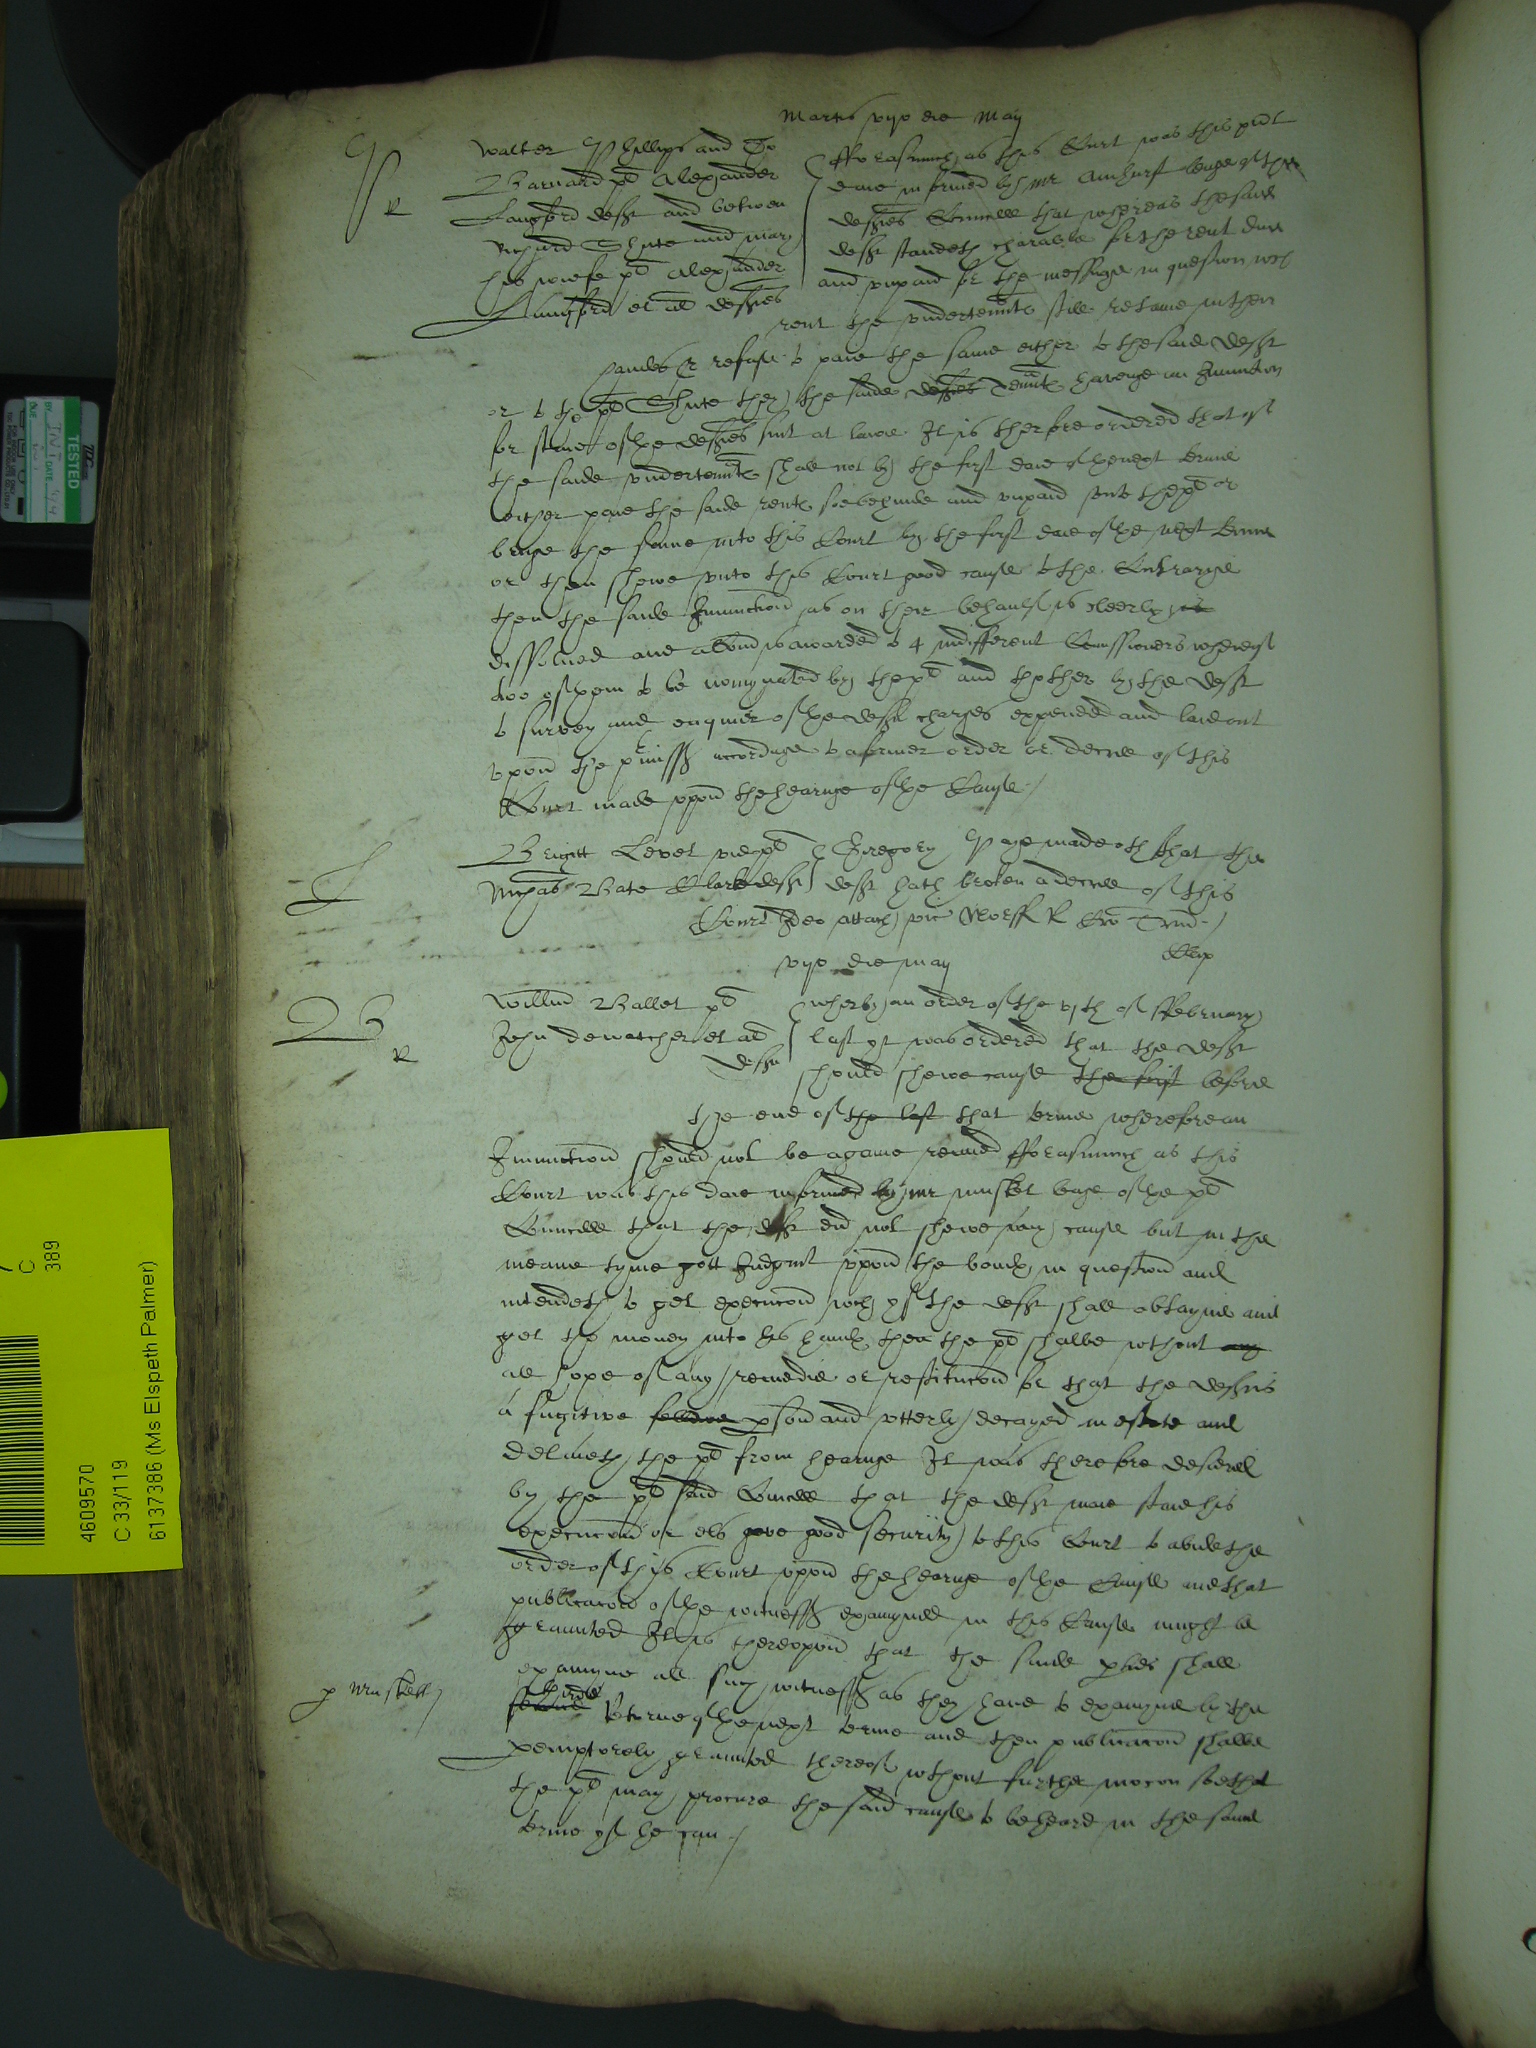 Martis vijo die May
P
R
Walter Phillips and Jo
Barnard plt Alexander
Langford defft and betwen
Richard Shute and mary
his wiefe plt Alexander
Langford et al deffts
fforasmuch as this Court was this pnt
daie informed by mr Amhurst beinge of the
deffts Councell that whereas the said
defft standeth charable for the rent due
and vnpaid for the messuage in question wch
rent the vndertennts still retaine in their
handes & refuse to paie the same either to the said defft
or to the plt Shute they the saide deffts Tennts haveinge an Iniunction
for staie of the deffts suit at lawe It is therfore ordered that yf
the saide vndertennts shall not by the first daie of the next terme
either paie the saide rents soe behinde and vnpaid vnto the plt or
bringe the same into this Court by the first daie of the next terme
or then shewe vnto this Court good cause to the Contrarye
then the saide Iniunction as on their behaulf is cleerly is
dissolued and a Comis awarded to 4 indifferent Comissioners whereof
two of them to be nominated by the plt and thother by the defft
to survey and enquire of the deffts charges expended and laid out
vpon the pmiss accordinge to a former order or decree of this
Court made vppon the hearinge of the Cause /
L
Brigitt Levet vid plt
Michaell Bate Clark defft
Gregory Page made oth that the
defft hath broken a decree of this
Court Ideo attach vic Norff R Cro Trin /
vijo die may
B
R
Willm Ballet plt
John dewatcher et al
defft
Wherby an order of the vjth of ffebruary
last yt was ordered that the defft
should shewe cause the first before
the end of the last that terme wherefore an
Iniunction should not be againe reuiued fforasmuch as this
Court was this daie informed by mr musket beinge of the plt
Councell that the defft did not shewe any cause but in the
meane tyme gott Iudgmt vppon the bond in question and
intendeth to get execucon wch yf the defft shall obtayne and
get the money into his hands then the plt shalbe without any
all hope of any remedie or restitucon for that the defft is
a fugitive pson and vtterly decayed in estate and
delaieth the plt from hearinge It was therefore desired
by the plt said Councell that the defft maie staie his
execucon or els geve good security to this Court to abide the
order of this Court vppon the hearinge of the Cause and that
publicacon of the witnesses examyned in this Cause might be
graunted It is therevppon that the saide pties shall
examyne all such witnesses as they have to examyne by the
second third retorne of the next terme and then publicacon shalbe
pemptorely graunted thereof without further mocon soe that
the plt may procure the said cause to be heard in the same
terme yf he can /
p Muskett
TESTED
BY
DATE
DUE
C
389
4609570
C 33/119
6137386 (Ms Elspeth Palmer)